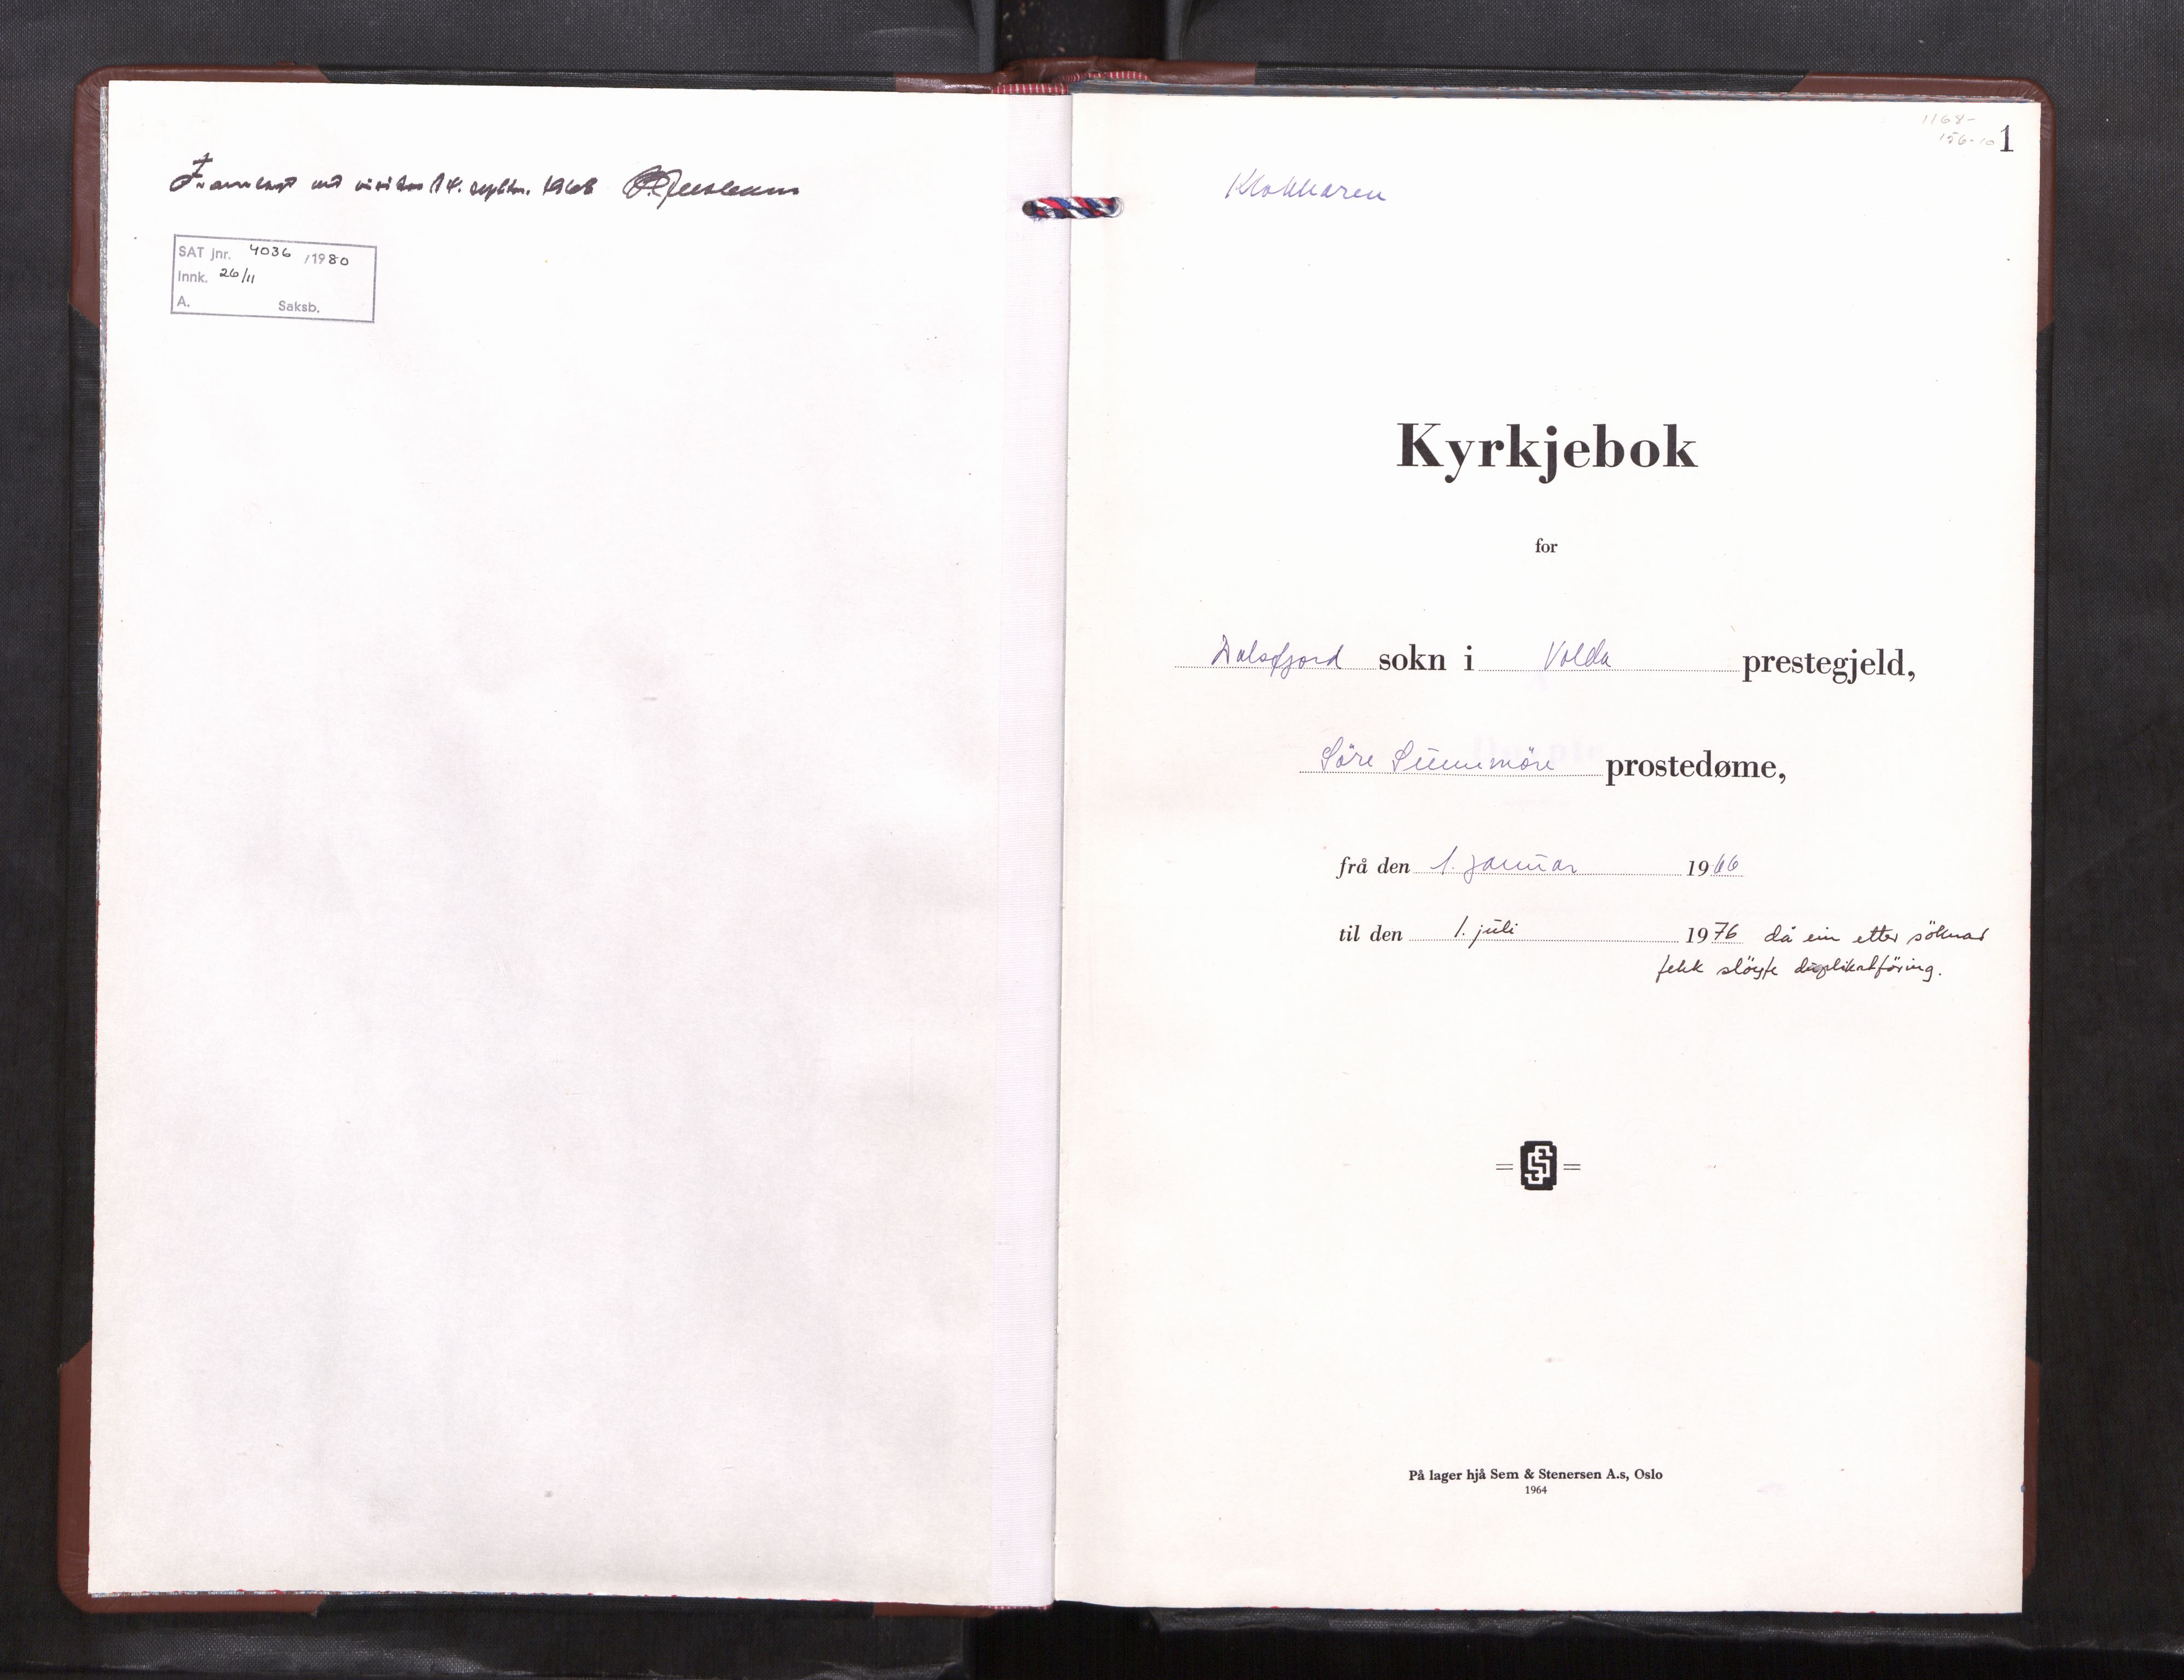 Framlagt ved visitas 14. septbr. 1968
SAT jnr. 4036 /1980
Innk. 26/11
A. Saksb.
1168-
156-10
1
Klokkaren
Kyrkjebok
for
Dalsfjord sokn i Volda prestegjeld,
Söre Sunnmöre prostedøme,
frå den 1. januar 1966
til den 1. juli 1976 då ein etter söknad
fekk slöyfe duplikatföring.
På lager hjå Sem & Stenersen A.s, Oslo
1964